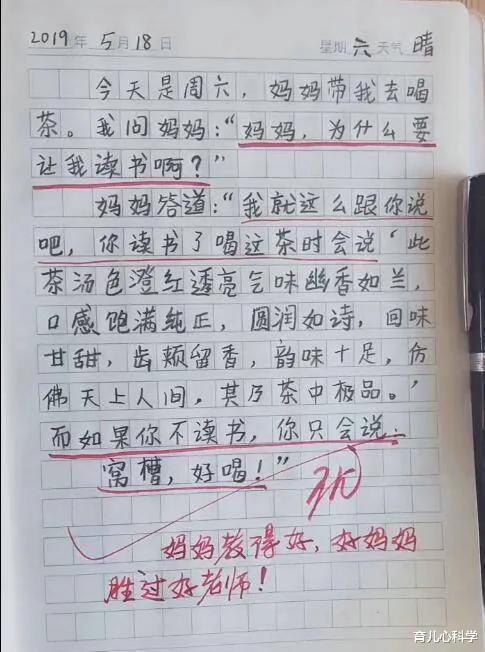 2019年5月18日 星期六天气晴
今天是周六，妈妈带我去喝
茶。我问妈妈：“妈妈，为什么要
让我读书啊？”
妈妈答道：“我就这么跟你说
吧，你读书了喝这茶时会说‘此
茶汤色澄红透亮气味幽香如兰，
口感饱满纯正，圆润如诗，回味
甘甜，齿颊留香，韵味十足，仿
佛天上人间，其乃茶中极品。’
而如果你不读书，你只会说：
窝槽，好喝！”
妈妈教得好，好妈妈
胜过好老师！
育儿心科学